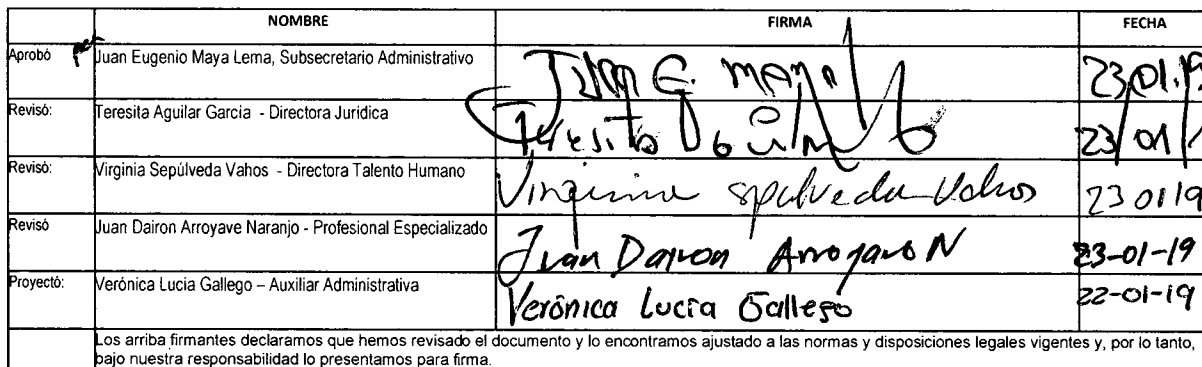 NOMBRE FIRMA FECHA
Aprobó Juan Eugenio Maya Lema, Subsecretario Administrativo Juan G. Maya 23.01.19
Revisó: Teresita Aguilar García - Directora Jurídica Teresita Aguilar G 23/01/
Revisó: Virginia Sepúlveda Vahos - Directora Talento Humano Virginia Sepulveda Vahos 23 01 19
Revisó Juan Dairon Arroyave Naranjo - Profesional Especializado Juan Dairon Arroyave N 23-01-19
Proyectó: Verónica Lucia Gallego – Auxiliar Administrativa Verónica Lucía Gallego 22-01-19
Los arriba firmantes declaramos que hemos revisado el documento y lo encontramos ajustado a las normas y disposiciones legales vigentes y, por lo tanto,
bajo nuestra responsabilidad lo presentamos para firma.